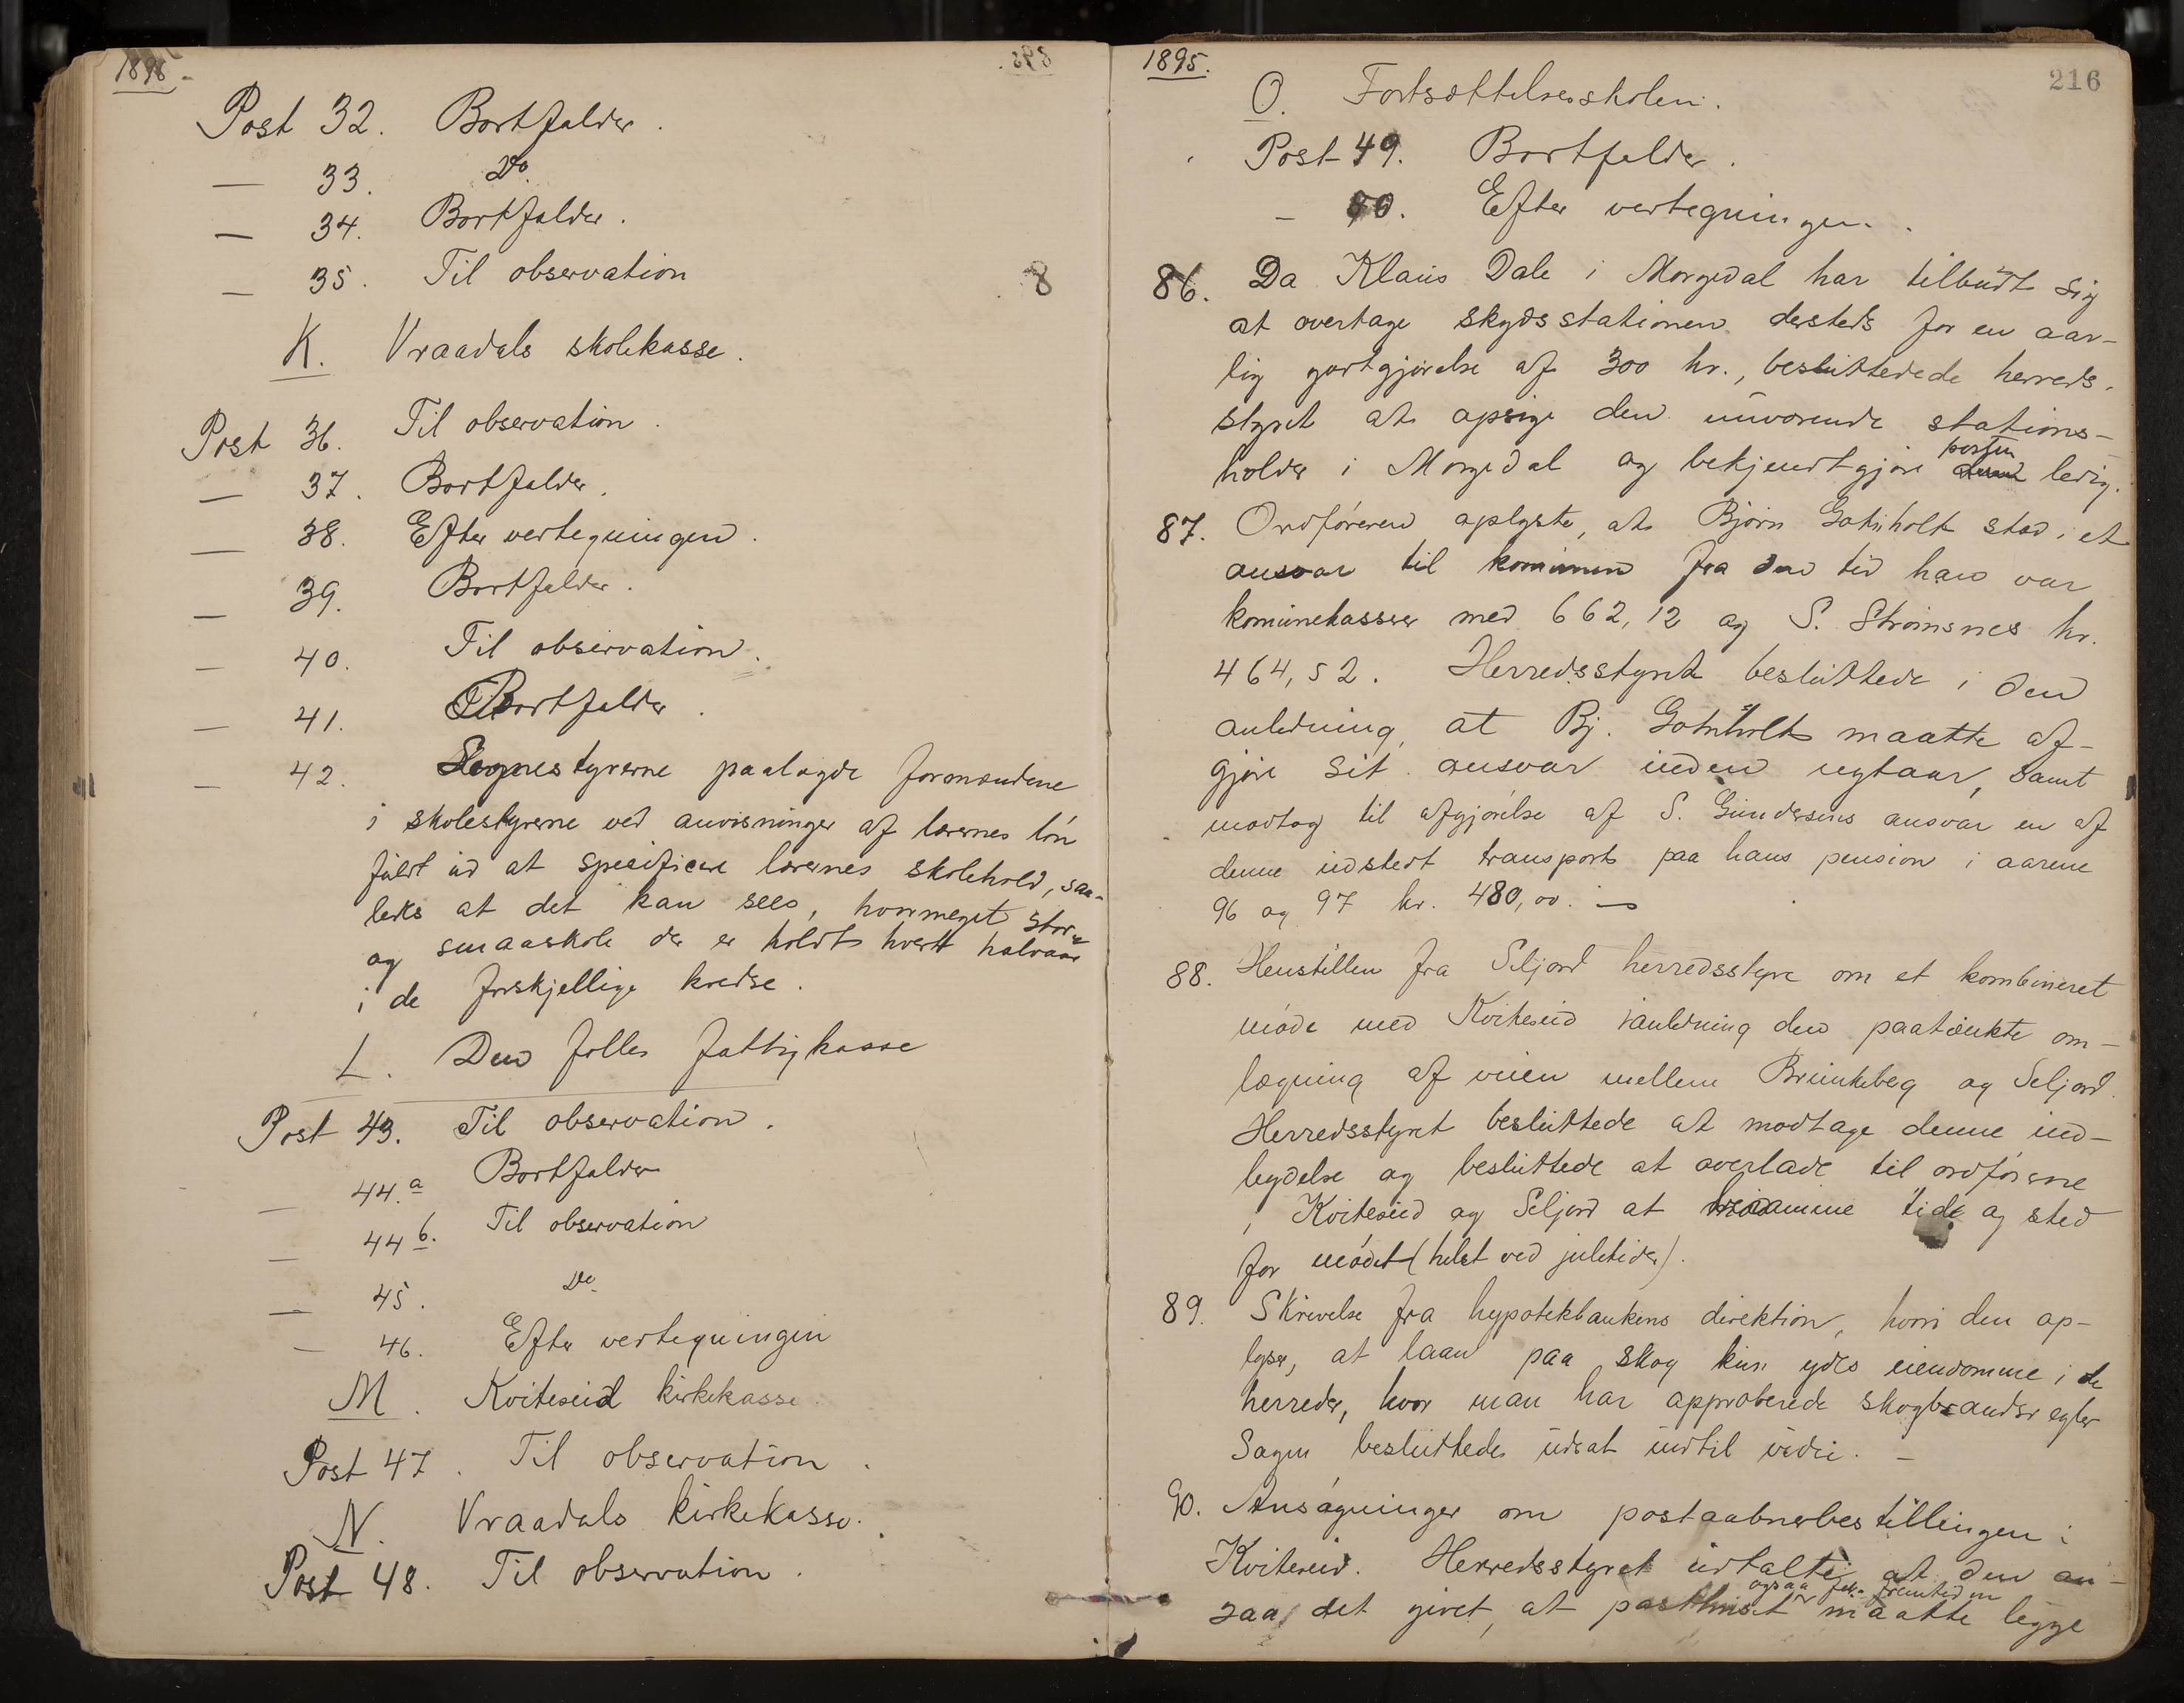 1895.
Post 32. Bortfalder.
— 33. Do.
— 34. Bortfalder.
— 35. Til observation
K. Vraadals skolekasse.
Post 36. Til observation.
— 37. Bortfalder.
— 38. Efter vertegningen.
— 39. Bortfalder.
— 40. Til observation.
— 41. Bortfalder.
— 42. Sognestyrerne paalagde formændene
i skolestyrerne ved anvisninger af lærernes løn
fuldt ud at specificere lærernes skolehold, saa-
ledes at det kan sees, hvormeget stor-
og smaaskole der er holdt hvert halvaar
i de forskjellige kredse.
L. Den fælles fattigkasse
Post 43. Til observation.
— 44.a Bortfalder
— 44 b. Til observation
— 45. Do.
— 46. Efter vertegningen
M. Kviteseid kirkekasse.
Post 47. Til observation.
N. Vraadals kirkekasse.
Post 48. Til observation.
1895.
216
O. Fortsættelsesskolen.
Post 49. Bortfalder.
— 50. Efter vertegningen.
86. Da Klaus Dale i Morgedal har tilbudt sig
at overtage skydsstationen dersteds for en aar-
lig godtgjørelse af 300 kr., besluttedede herreds-
styret at opsige den nuværende stations-
holder i Morgedal og bekjendtgjøre posten ledig.
87. Ordføreren oplyste, at Bjørn Gotuholt stod i et
ansvar til kommunen fra den tid han var
kommunekasserer med 662,12 og S. Strømsnes kr.
464,52. Herredsstyret besluttede i den
anledning, at Bj. Gotuholt maatte af-
gjøre sit ansvar inden nytaar, samt
modtog til afgjørelse af S. Gundersens ansvar en af
denne udstedt transport paa hans pension i aarene
96 og 97 kr. 480,00. —
88. Henstillen fra Seljord herredsstyre om et kombineret
møde med Kviteseid i anledning den paatænkte om-
lægning af veien mellem Brunkeberg og Seljord.
Herredsstyret besluttede at modtage denne ind-
bydelse og besluttede at overlade til ordførerne
i Kviteseid og Seljord at bestemme tide og sted
for mødet (helst ved juletider).
89. Skrivelse fra hypotekbankens direktion, hvori den op-
lyser, at laan paa skog kun ydes eiendomme i de
herreder, hvor man har approberede skogbrandsregler
Sagen besluttedes udsat indtil videre. —
90. Ansøgninger om postaabnerbestillingen i
Kviteseid. Herredsstyret udtalte, at den an-
ogsaa for fremtiden
saa det givet, at posthuset maatte ligge